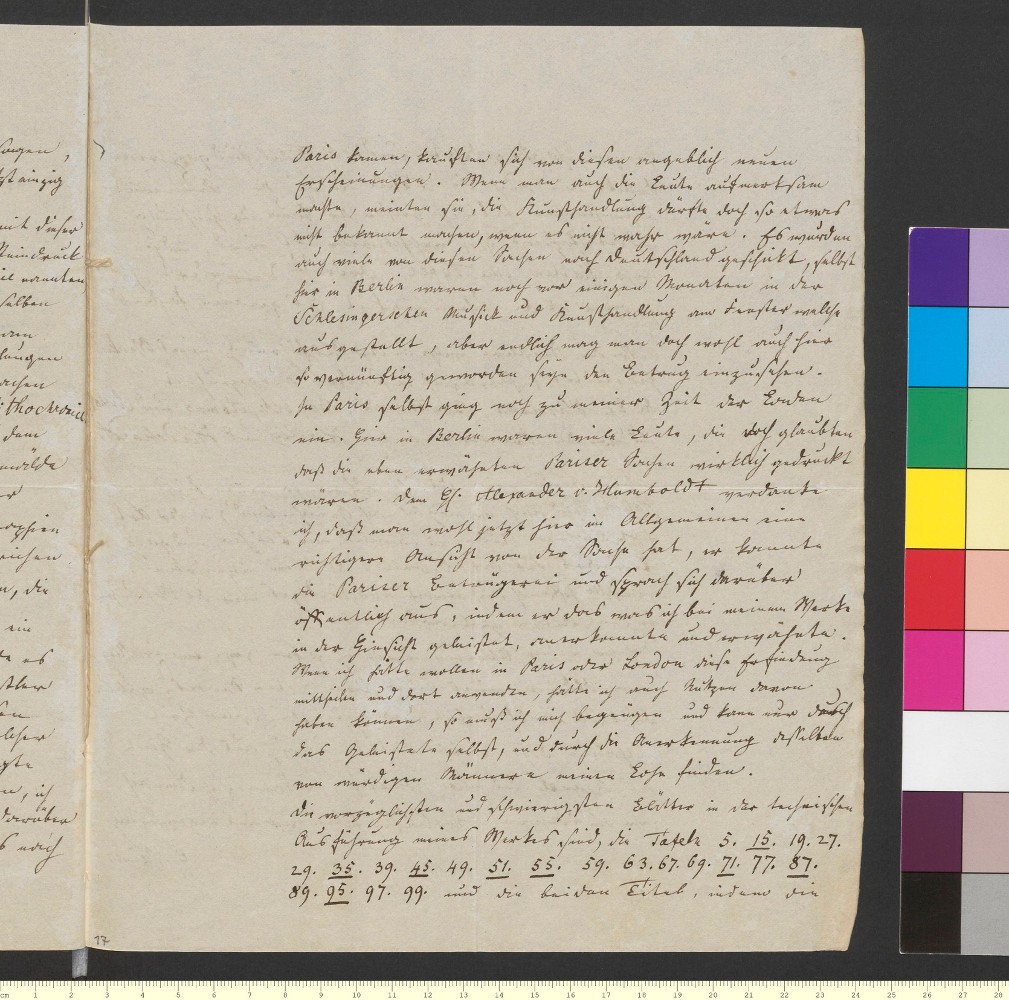 Paris kamen, kauften sich von diesen angeblich neuen
Erscheinungen. Wenn man auch die Leute aufmerksam
machte, meinten sie, die Kunsthandlung dürfte doch so etwas
nicht bekannt machen, wenn es nicht wahr wäre. Es wurden
auch viele von diesen Sachen nach Deutschland geschickt, selbst
hier in Berlin waren noch vor einigen Monaten in der
Schlesingerschen Musick und Kunsthandlung am Fenster welche
ausgestellt, aber endlich mag man doch wohl auch hier
so vernünftig geworden seyn den Betrug einzusehen.
In Paris selbst ging noch zu meiner Zeit der Laden
ein. Hier in Berlin waren viele Leute, die doch glaubten
daß die eben erwähnten Pariser Sachen wirklich gedruckt
wären. Dem H. Alexander v. Humboldt verdanke
ich, daß man wohl jetzt hier im Allgemeinen eine
richtigere Ansicht von der Sache hat, er kannte
die Pariser Betrügerei und sprach sich darüber
öffentlich aus, indem er das was ich bei meinem Werke
in der Hinsicht geleistet, anerkannte und erwähnte.
Wenn ich hätte wollen in Paris oder London diese Erfindung
mittheilen und dort anwenden, hätte ich auch Nutzen davon
haben können, so muß ich mich begnügen und kann nur durch
das Geleistete selbst, und durch die Anerkennung desselben
von würdigen Männern meinen Lohn finden.
Die vorzüglichsten und schwierigsten Blätter in der technischen
Ausführung meines Werkes sind, die Tafeln 5. 15. 19. 27.
29. 35. 39. 45. 49. 51. 55. 59. 63. 67. 69. 71. 77. 87.
89. 95. 97. 99. und die beiden Titel, indem die
17